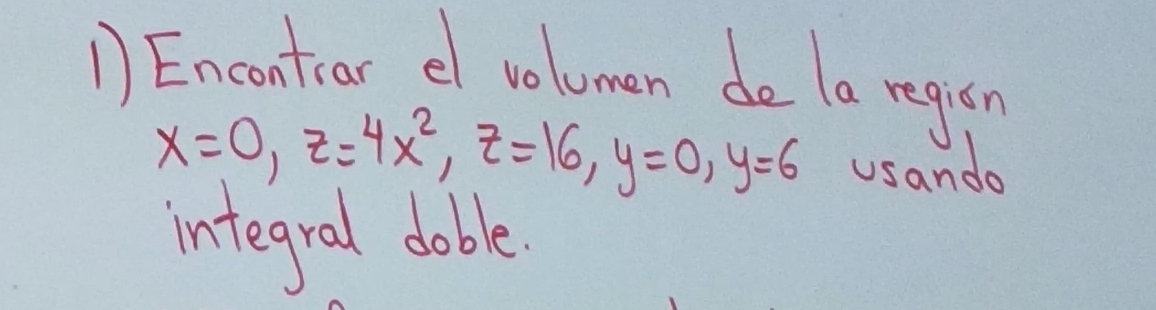 1) Encontrar el volumen de la region
x=0, z=4x², z=16, y=0, y=6 usando
integral doble.